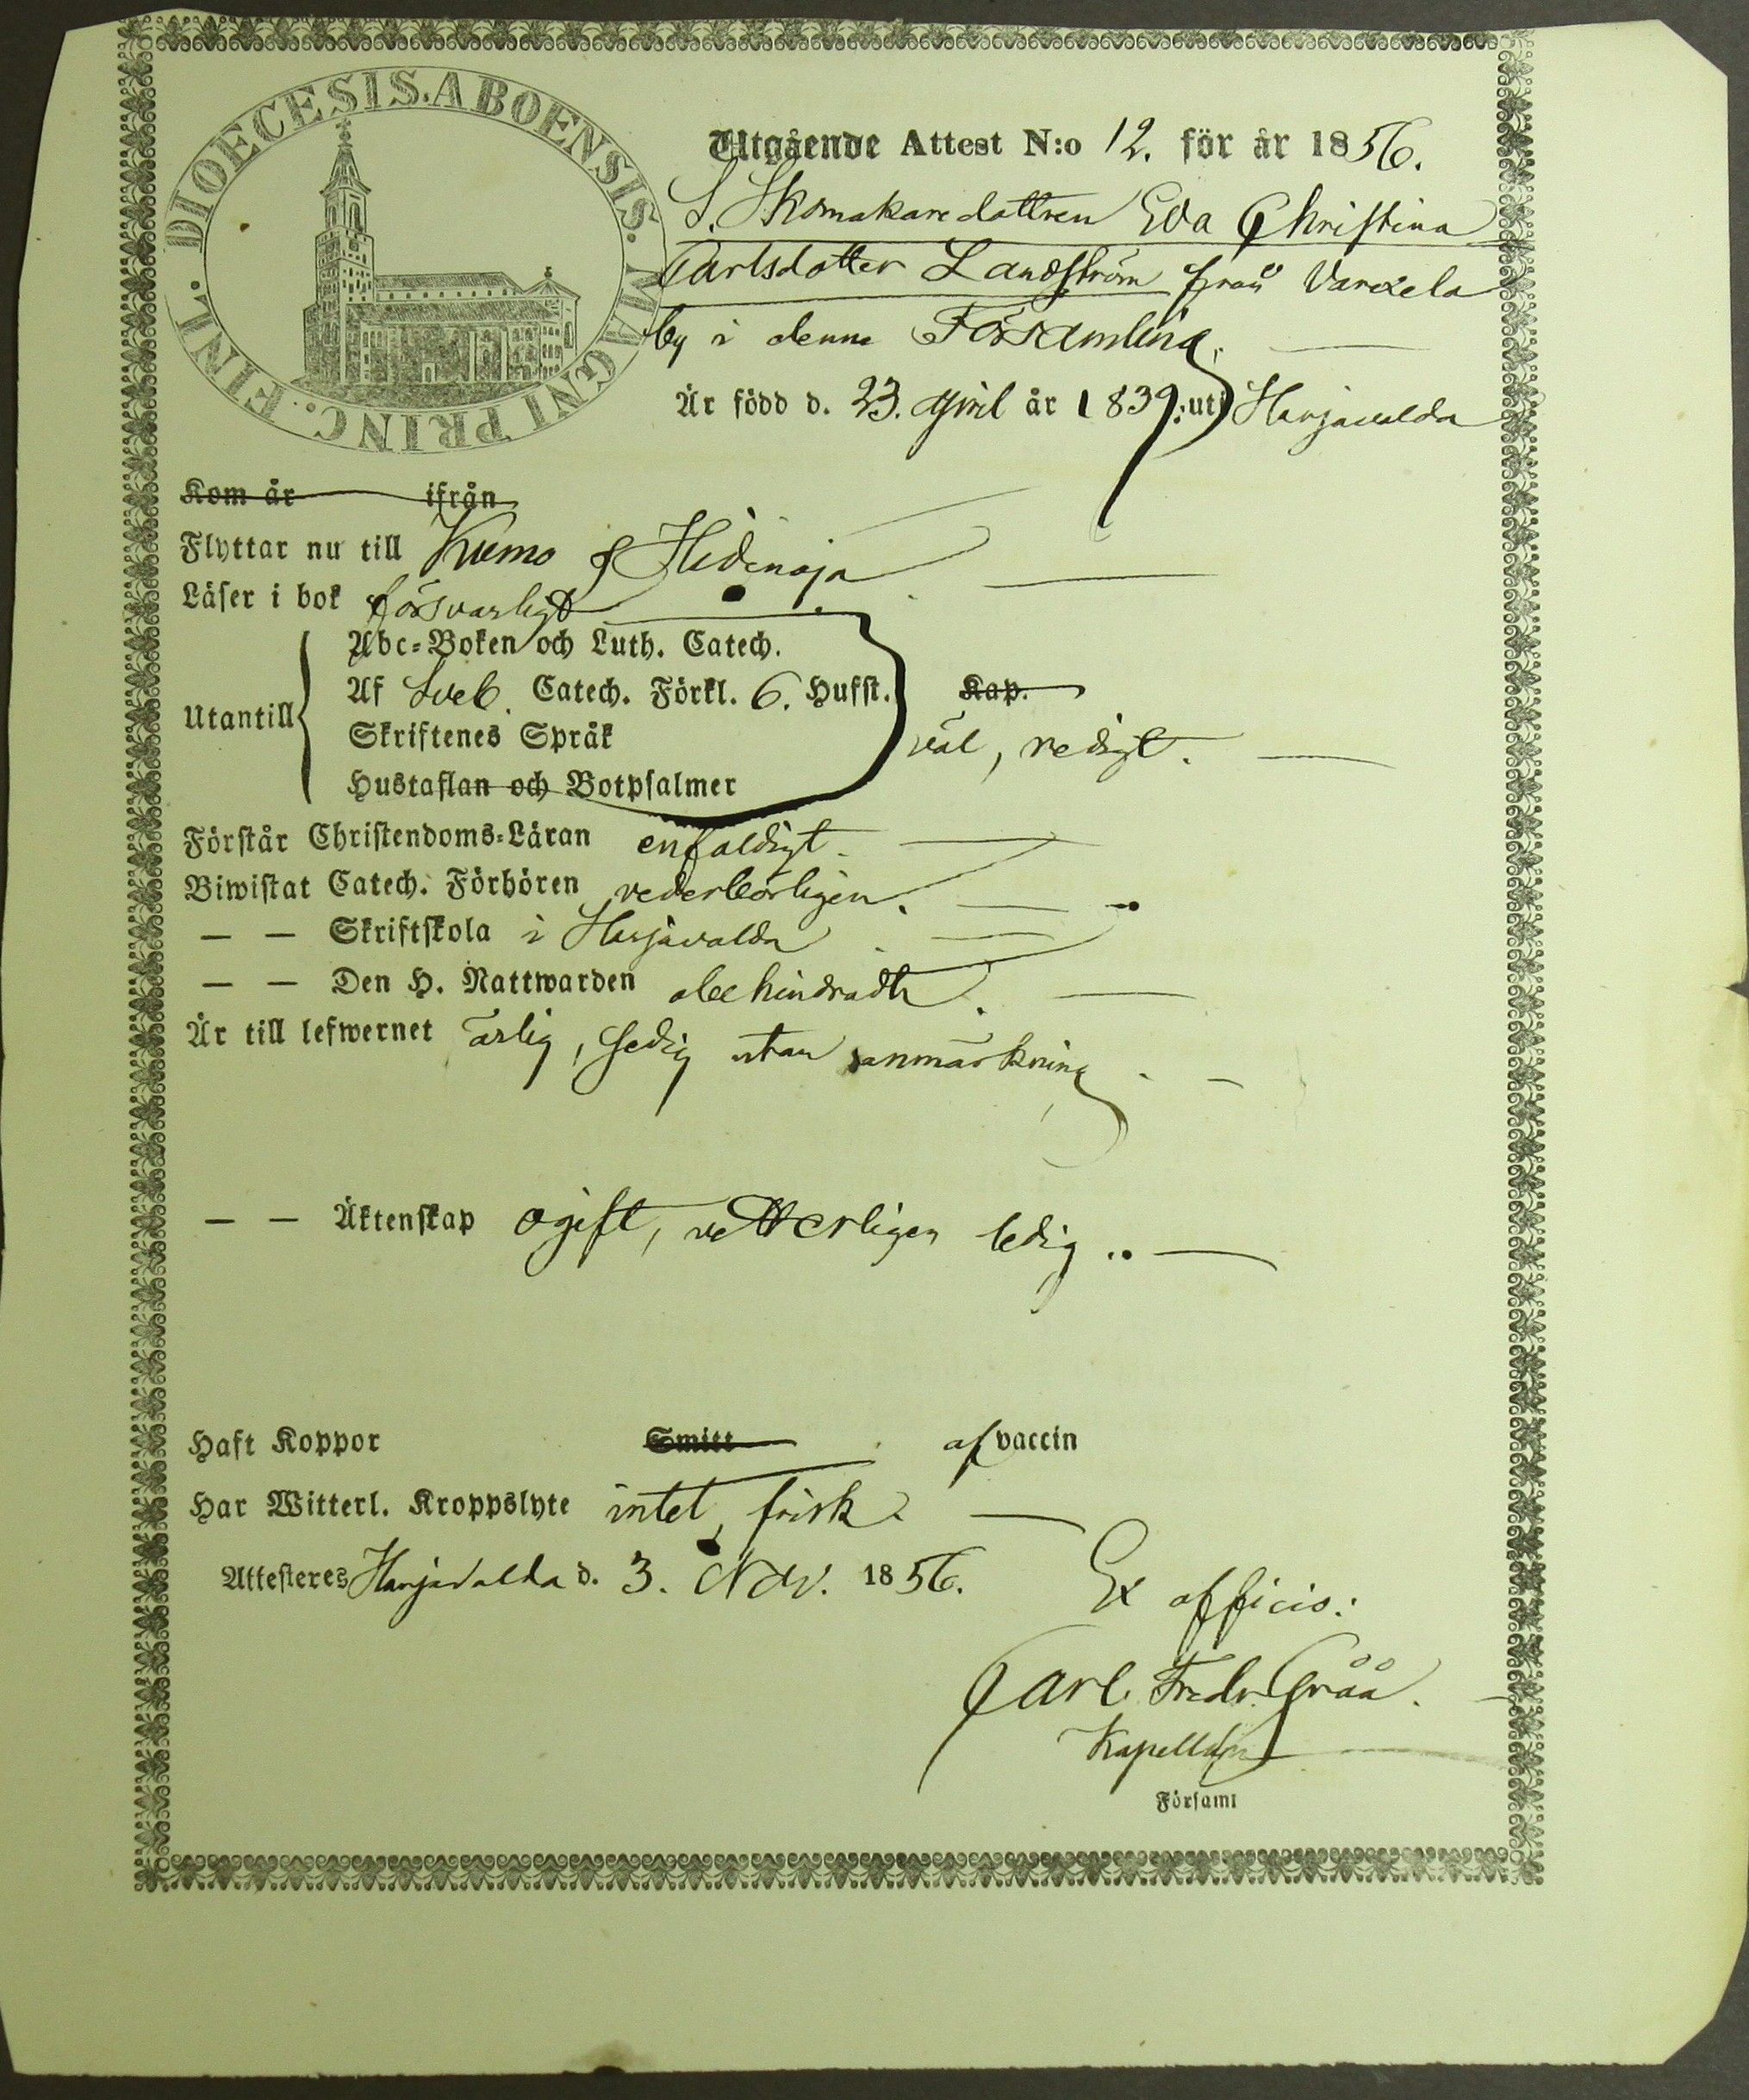 DIOECESIS. ABOENSIS. MAGNI PRINC. FINL.
Utgående Attest N:o 12. för år 1856.
S. Skomakaredottren Eva Christina
Carlsdotter Landström från
by i denna Församling.
Är född d. 23. April år 1839. uti Harjavalda
Kom år ifrån
Flyttar nu till Kumo
Läser i bok försvarligt
Abc-Boken och Luth. Catech.
Af Sveb. Catech. Förkl. 6. Hufst. Kap.
Utantill
Skriftenes Språk
väl, redigt.
Hustaflan och Botpsalmer
Förstår Christendoms-Läran enfaldigt.
Biwistat Catech. Förhören vederbörligen.
— — Skriftskola i Harjavalda
— — Den H. Nattwarden obehindradt.
Är till lefwernet ärlig, sedig utan anmärkning.
— — Äktenskap ogift, vetterligen ledig..
Haft Koppor Smitt af vaccin
Har Witterl. Kroppslyte intet, frisk
Attesteres Harjavalda d. 3. Nov. 1856.
Ex officio:
Carl Fredr. Gråå.
Kapellan
Församl